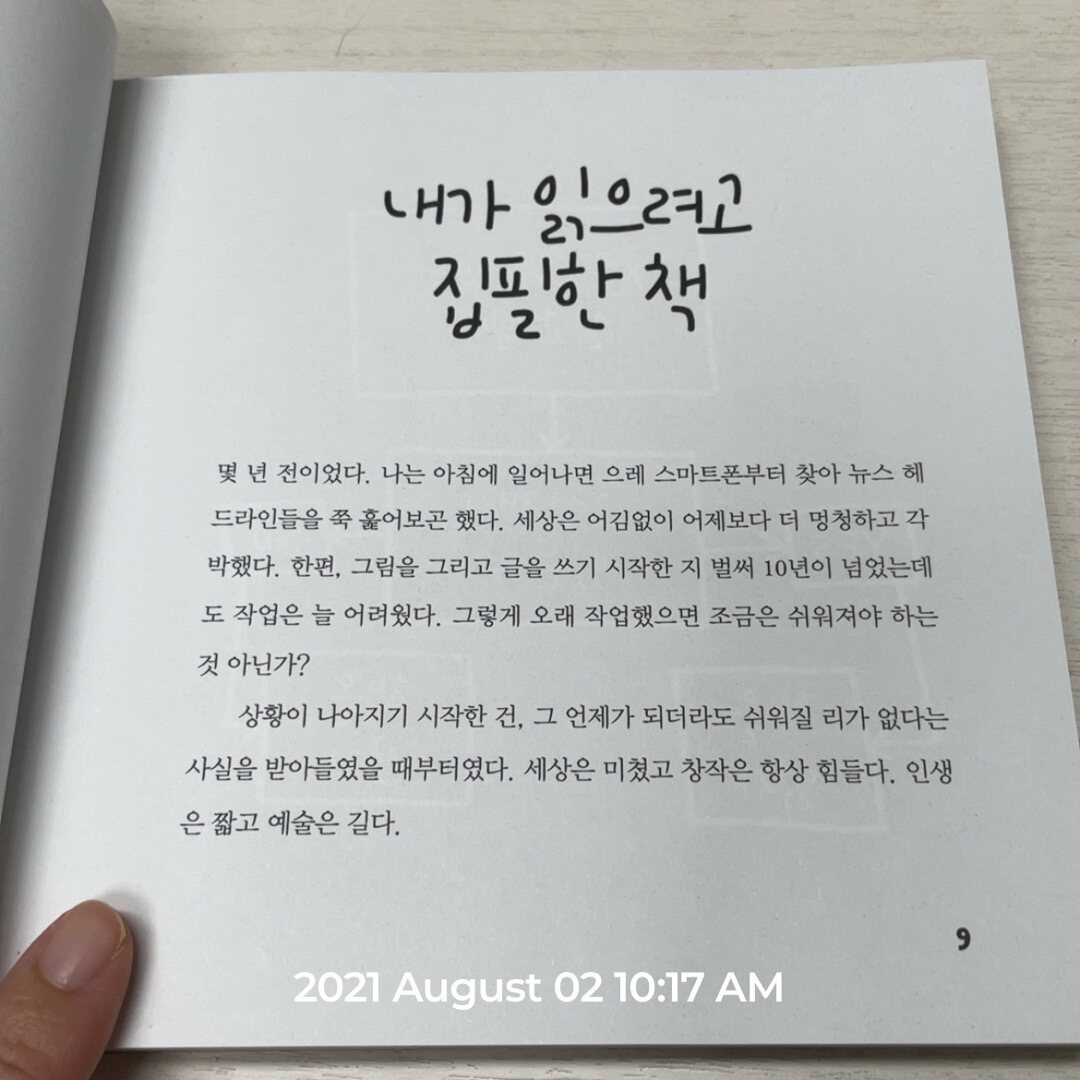 내가 읽으려고
집필한 책
몇 년 전이었다. 나는 아침에 일어나면 으레 스마트폰부터 찾아 뉴스 헤
드라인들을 쭉 훑어보곤 했다. 세상은 어김없이 어제보다 더 멍청하고 각
박했다. 한편, 그림을 그리고 글을 쓰기 시작한 지 벌써 10년이 넘었는데
도 작업은 늘 어려웠다. 그렇게 오래 작업했으면 조금은 쉬워져야 하는
것 아닌가?
상황이 나아지기 시작한 건, 그 언제가 되더라도 쉬워질 리가 없다는
사실을 받아들였을 때부터였다. 세상은 미쳤고 창작은 항상 힘들다. 인생
은 짧고 예술은 길다.
9
2021 August 02 10:17 AM